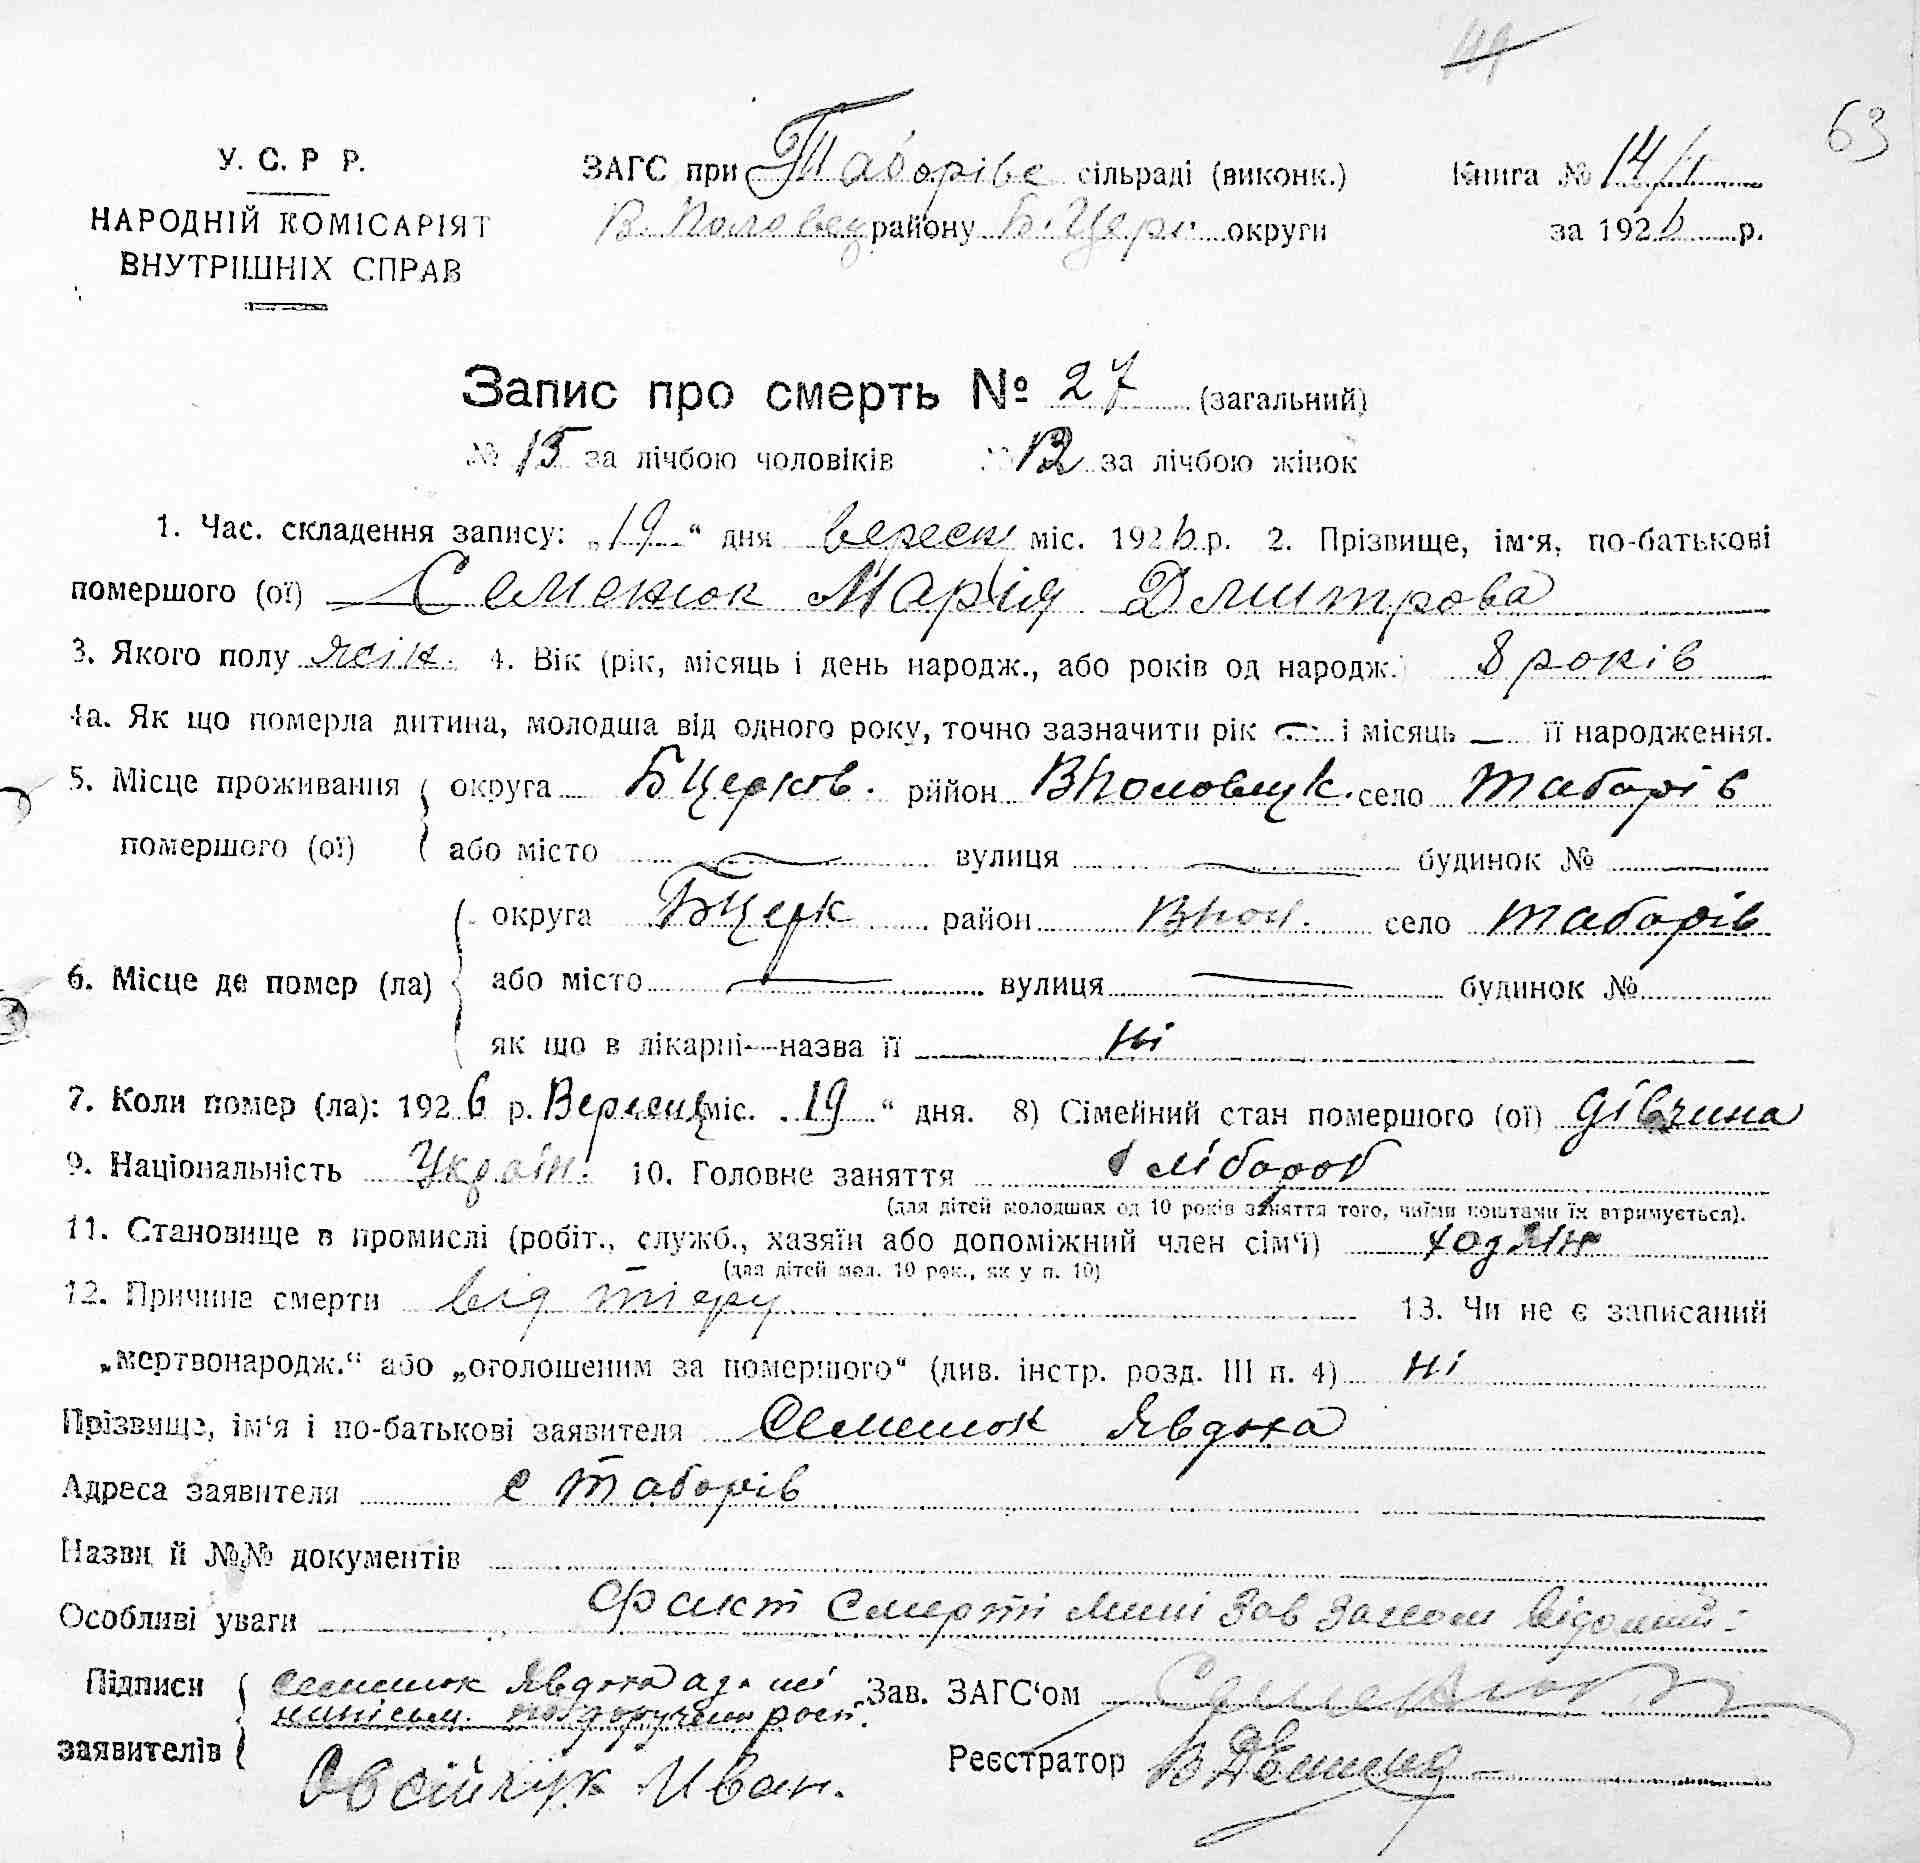 63
У. С. Р Р.
НАРОДНІЙ КОМІСАРІЯТ
ВНУТРІШНІХ СПРАВ
ЗАГС при Таборівс сільраді (виконк.)
В. Половец району Б. Церк округи
Книга № 14/
за 1926 р.
Запис про смерть № 27 (загальний)
№ 15 за лічбою чоловіків № 12 за лічбою жінок
1. Час. складення запису: „19“ дня вересн міс. 1926 р. 2. Прізвище, ім'я, по-батькові
помершого (ої) Семенюк Марія Дмитрова
3. Якого полу жін. 4. Вік (рік, місяць і день народж., або років од народж.) 8 років
4а. Як що померла дитина, молодша від одного року, точно зазначити рік — і місяць — її народження.
5. Місце проживання округа БЦерков. рййон ВПоловецк. село Таборів
помершого (ої) або місто — вулиця — будинок № —
округа БЦерк район ВПол. село Таборів
6. Місце де помер (ла) або місто — вулиця — будинок №
як що в лікарні—назва її ні
7. Коли помер (ла): 1926 р. Вересня міс. „19“ дня. 8) Сімейний стан помершого (ої) дівчина
9. Національність Україн. 10. Головне заняття хлібороб
(для дітей молодших од 10 років заняття того, чиїми коштами їх втримується).
11. Становище в промислі (робіт., служб., хазяїн або допоміжний член сім'ї)
(для дітей мол. 10 рок., як у п. 10)
12. Причина смерти від тіфу 13. Чи не є записаний
„мертвонародж.“ або „оголошеним за помершого“ (див. інстр. розд. III п. 4) ні
Прізвище, ім'я і по-батькові заявителя Семенюк Явдоха
Адреса заявителя с Таборів
Назви й №№ документів
Особливі уваги Факт смерті мині Зав Загсом відомий
Підписи Семенюк Явдоха а за ні
неписьм. по доручению росп.
заявителів Овсійчук Иван.
Зав. ЗАГС'ом Семенюк
Реєстратор